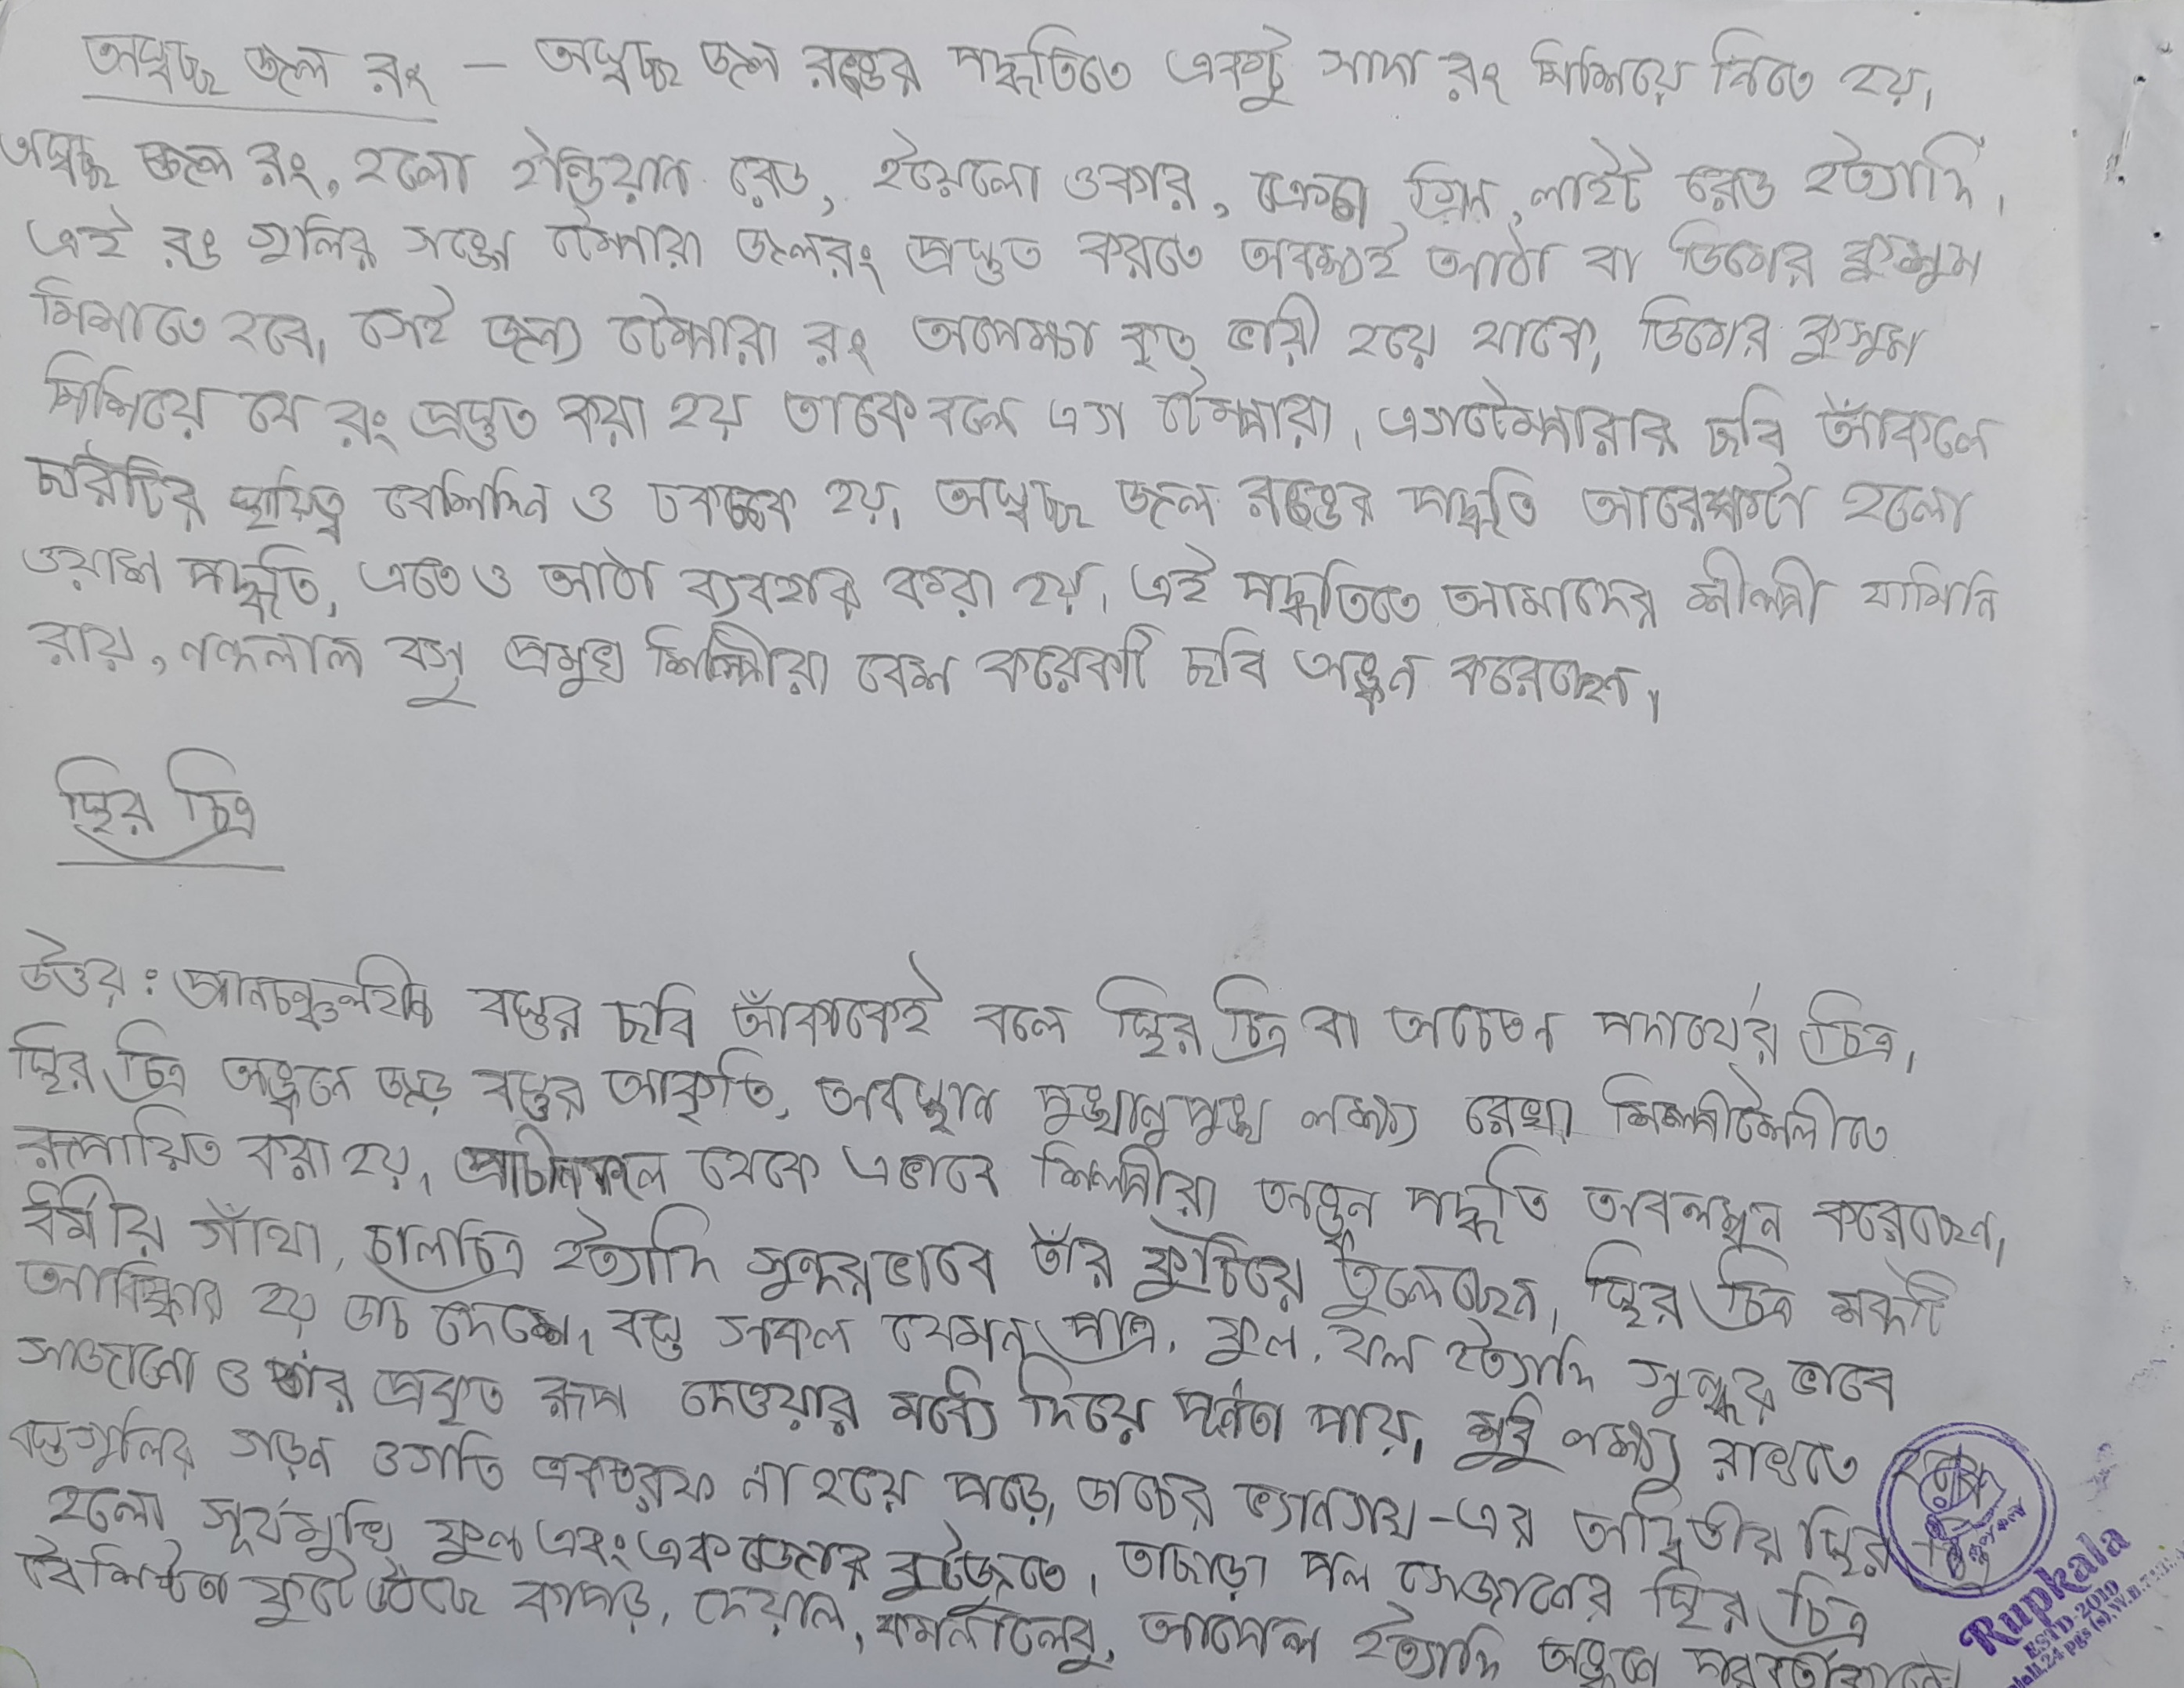 অস্বচ্ছ জল রং — অস্বচ্ছ জল রঙের পদ্ধতিতে একটু সাদা রং মিশিয়ে নিতে হয়।
অস্বচ্ছ জল রং, হলো ইন্ডিয়ান রেড, ইয়েলো ওকার, ক্রোম গ্রিন, লাইট রেড ইত্যাদি।
এই রঙ গুলির সঙ্গে টেম্পারা জলরং প্রস্তুত করতে অবশ্যই আঠা বা ডিমের কুসুম
মিশাতে হবে। সেই জন্য টেম্পারা রং অপেক্ষা কৃত ভারী হয়ে থাকে, ডিমের কুসুম
মিশিয়ে যে রং প্রস্তুত করা হয় তাকে বলে এগ টেম্পারা। এগটেম্পারার ছবি আঁকলে
ছবিটির স্থায়িত্ব বেশিদিন ও চকচকে হয়। অস্বচ্ছ জল রঙের পদ্ধতি আরেকটা হলো
ওয়াশ পদ্ধতি, এতে ও আঠা ব্যবহার করা হয়। এই পদ্ধতিতে আমাদের শীল্পী যামিনি
রায়, নন্দলাল বসু প্রমুখ শিল্পীরা বেশ কয়েকটি ছবি অঙ্কন করেছেন।
স্থির চিত্র
উত্তর: প্রানচঞ্চলহীন বস্তুর ছবি আঁকাকেই বলে স্থির চিত্র বা অচেতন পদার্থের চিত্র।
স্থির চিত্র অঙ্কনে জড় বস্তুর আকৃতি, অবস্থান পুঙ্খানুপুঙ্খ লক্ষ্য রেখা শিল্পীশৈলীতে
রূপায়িত করা হয়। প্রাচীনকাল থেকে এভাবে শিল্পীরা অঙ্কন পদ্ধতি অবলম্বন করেছেন।
ধর্মীয় গাঁথা, চালচিত্র ইত্যাদি সুন্দরভাবে তাঁর ফুটিয়ে তুলেছেন। স্থির চিত্র শব্দটি
আবিস্কার হয় ডাচ দেশে। বস্তু সকল যেমন পাত্র, ফুল, ফল ইত্যাদি সুন্দর ভাবে
সাজানো ও তার প্রকৃত রূপ দেওয়ার মধ্যে দিয়ে পূর্ণতা পায়। শুধু লক্ষ্য রাখতে হবে
বস্তুগুলির গড়ন ওগতি একতরফ না হয়ে পড়ে, ডাচের ভ্যানগখ-এর অদ্বিতীয় স্থির চিত্র
হলো সূর্যমুখি ফুল এবং এক জোড়া বুটজুতো। তাছাড়া পল সেজানের স্থির চিত্র
বৈশিষ্টতা ফুটে উঠেছে কাপড়, দেয়াল, কমলালেবু, আপেল ইত্যাদি অঙ্কনে
Rupkala
ESTD-2010